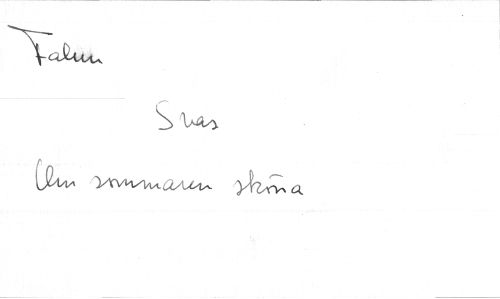 Falun
Svas
Um sommaren sköna